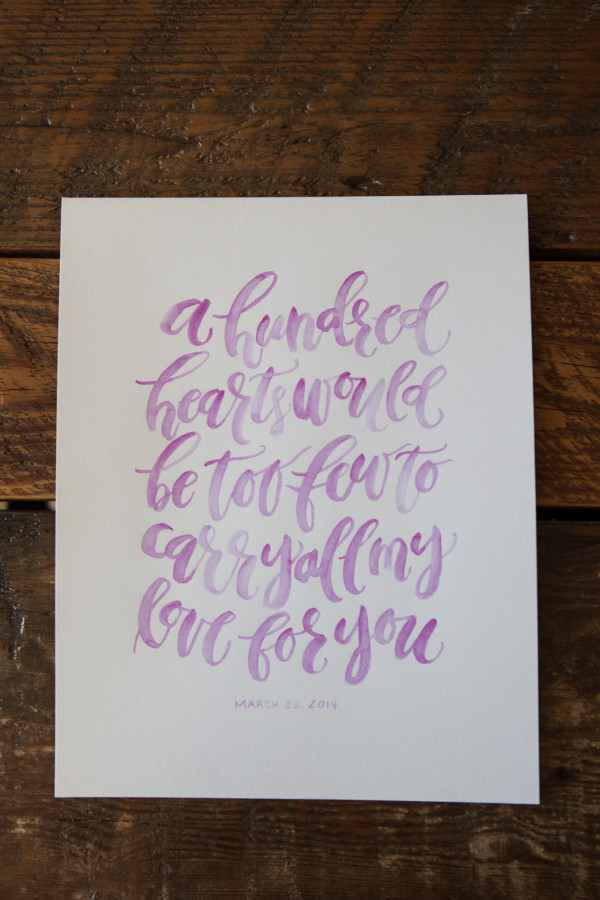 a hundred
hearts would
be too few to
carry all my
love for you
MARCH 22, 2014